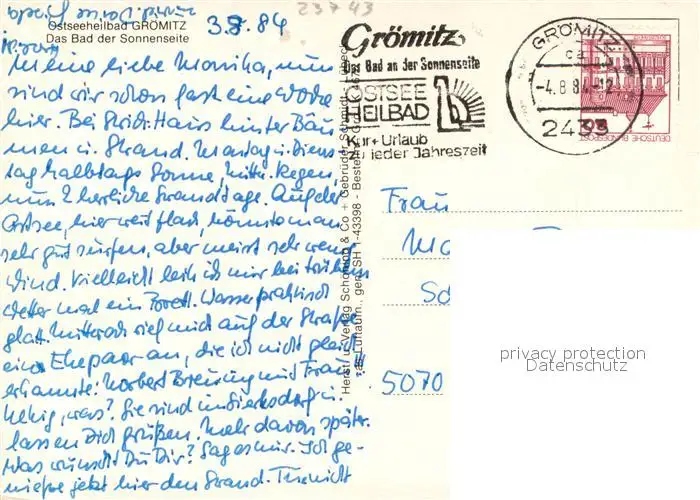 Ostseeheilbad GRÖMITZ
Das Bad der Sonnenseite
3.8.84
Meine liebe Monika, nun
sind wir schon fast eine Woche
hier. Bei Haus hinter Bäu-
men u. Strand. Montag u. Diens-
tag halbtags Sonne, Mittw. Regen,
nun 2 herrliche Strandtage. Auf der
Ostsee, hier weit flach, könnte man
sehr gut surfen, aber meist sehr wenig
Wind. Vielleicht leih ich mir bei
Wetter mal ein Brett. Wasser praktisch
glatt. Mittwoch rief mich auf der Straße
ein Ehepaar an, die ich nicht gleich
erkannte: Norbert Breuning mit Frau!!
was? Sie sind in Sierksdorf u.
lassen Dich grüßen. Mehr davon später.
Was wünscht Du Dir? Sag es mir. Ich ge-
nieße jetzt hier den Strand.
23743
Grömitz
Das Bad an der Sonnenseite
OSTSEE
HEILBAD
Kur + Urlaub
zu jeder Jahreszeit
GRÖMITZ
-4.8.84-12
2433
DEUTSCHE BUNDESPOST
Herst. u. Verlag Schöning & Co + Gebrüder Schmidt - Lübeck
Frau
5070
privacy protection
Datenschutz